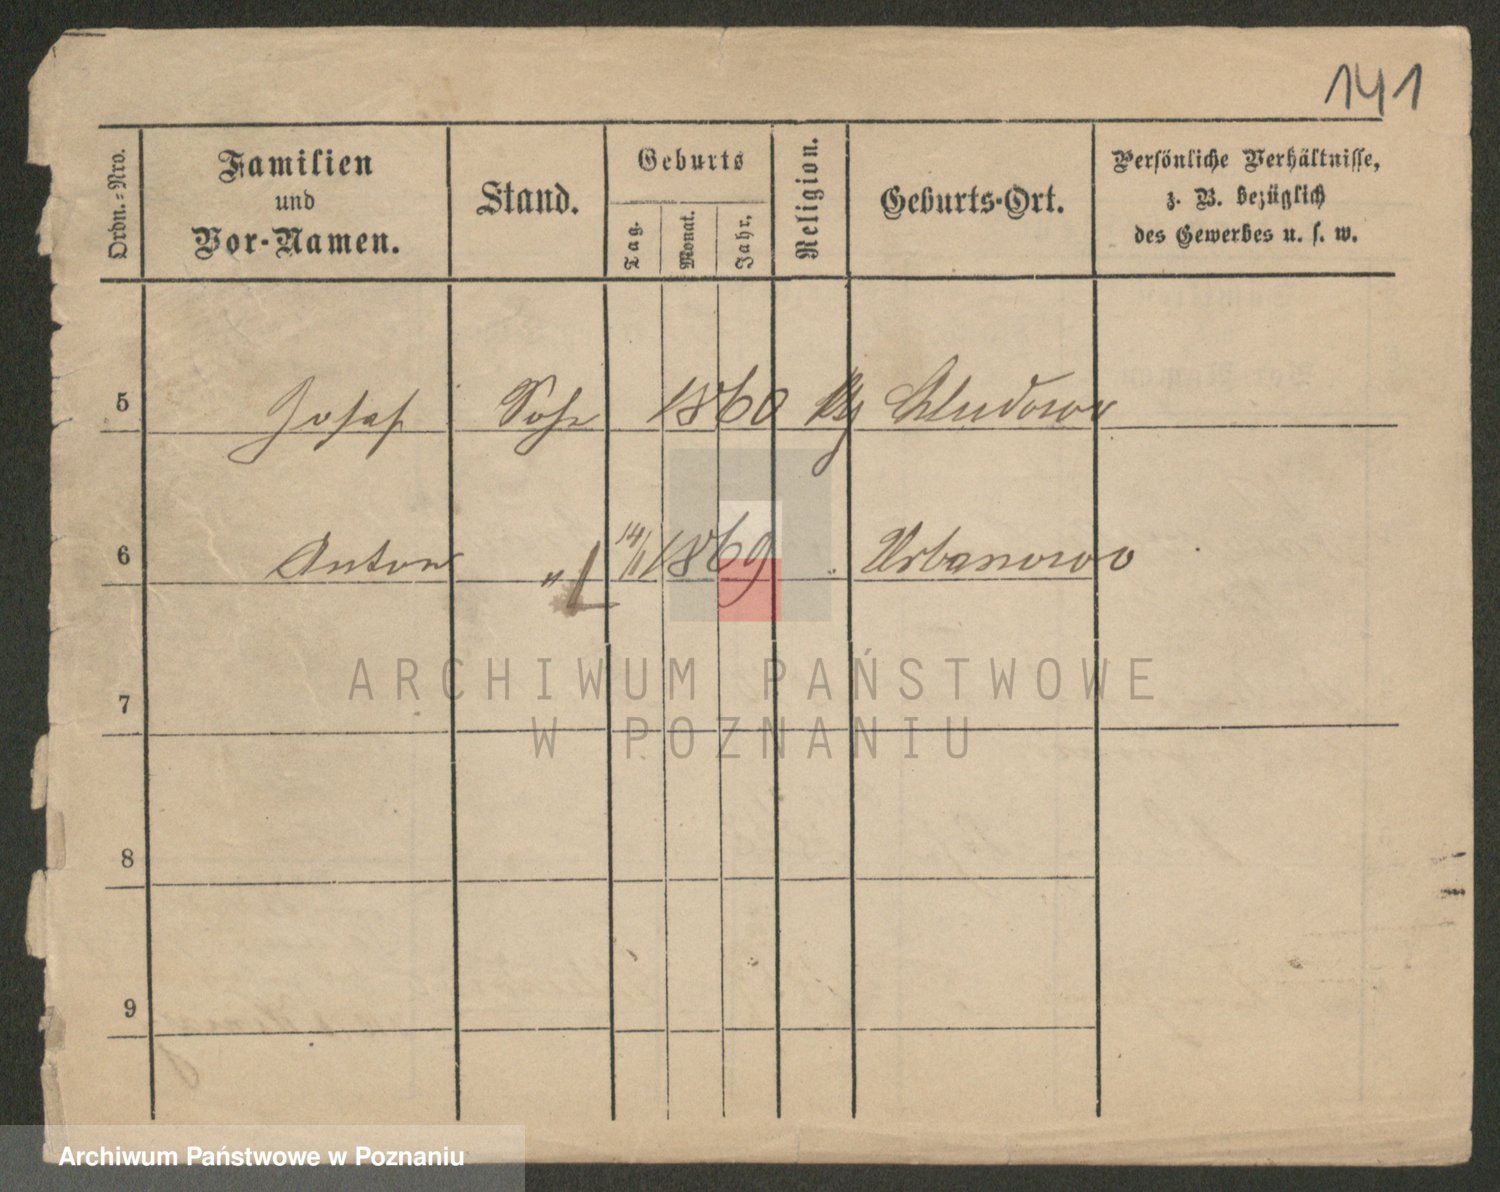 141
Ordn.-Nro.
Familien
und
Vor-Namen.
Stand.
Geburts
Tag.
Monat.
Jahr.
Religion.
Geburts-Ort.
Persönliche Verhältnisse,
z. B. bezüglich
des Gewerbes u. s. w.
5 Josef Sohn 1860
6 Anton " 14/11 1869 Urbanowo
7
8
9
ARCHIWUM PAŃSTWOWE
W POZNANIU
Archiwum Państwowe w Poznaniu